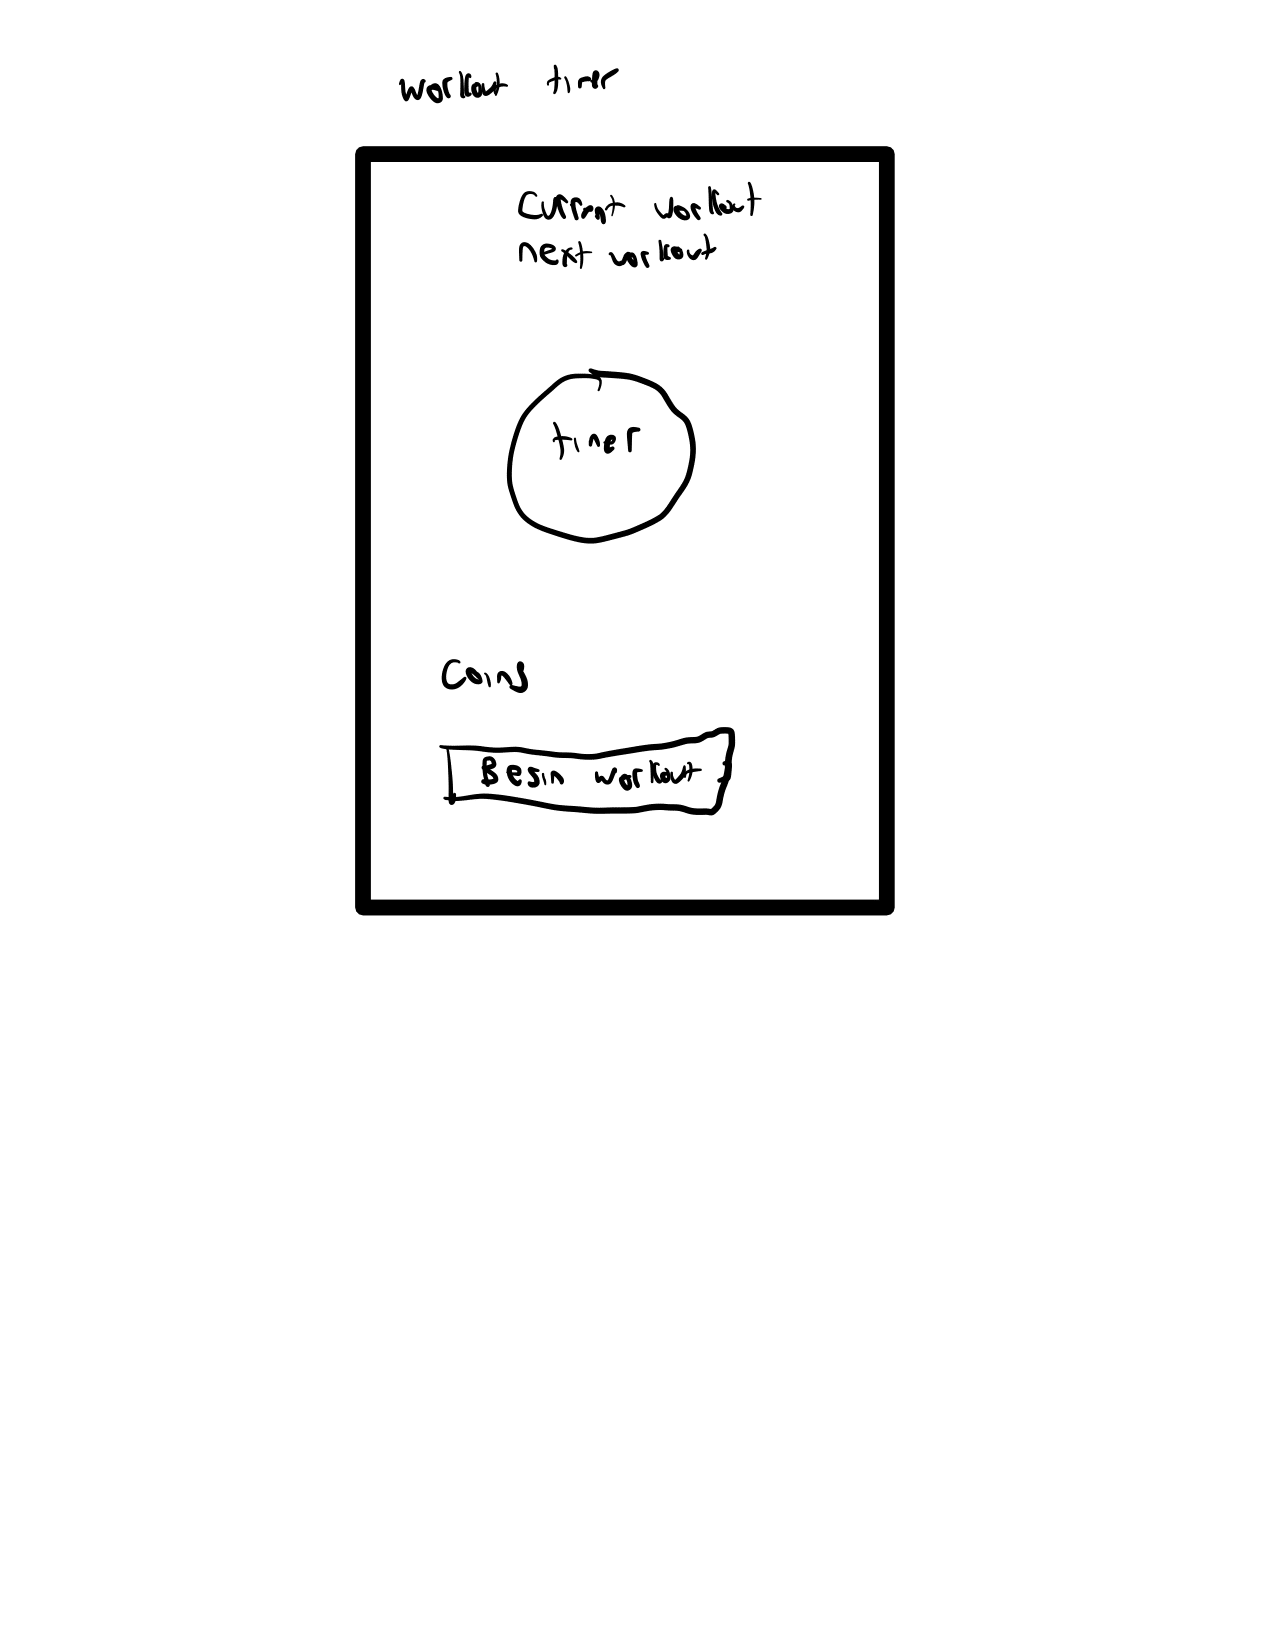 workout timer
Current workout
next workout
timer
Coins
Begin workout